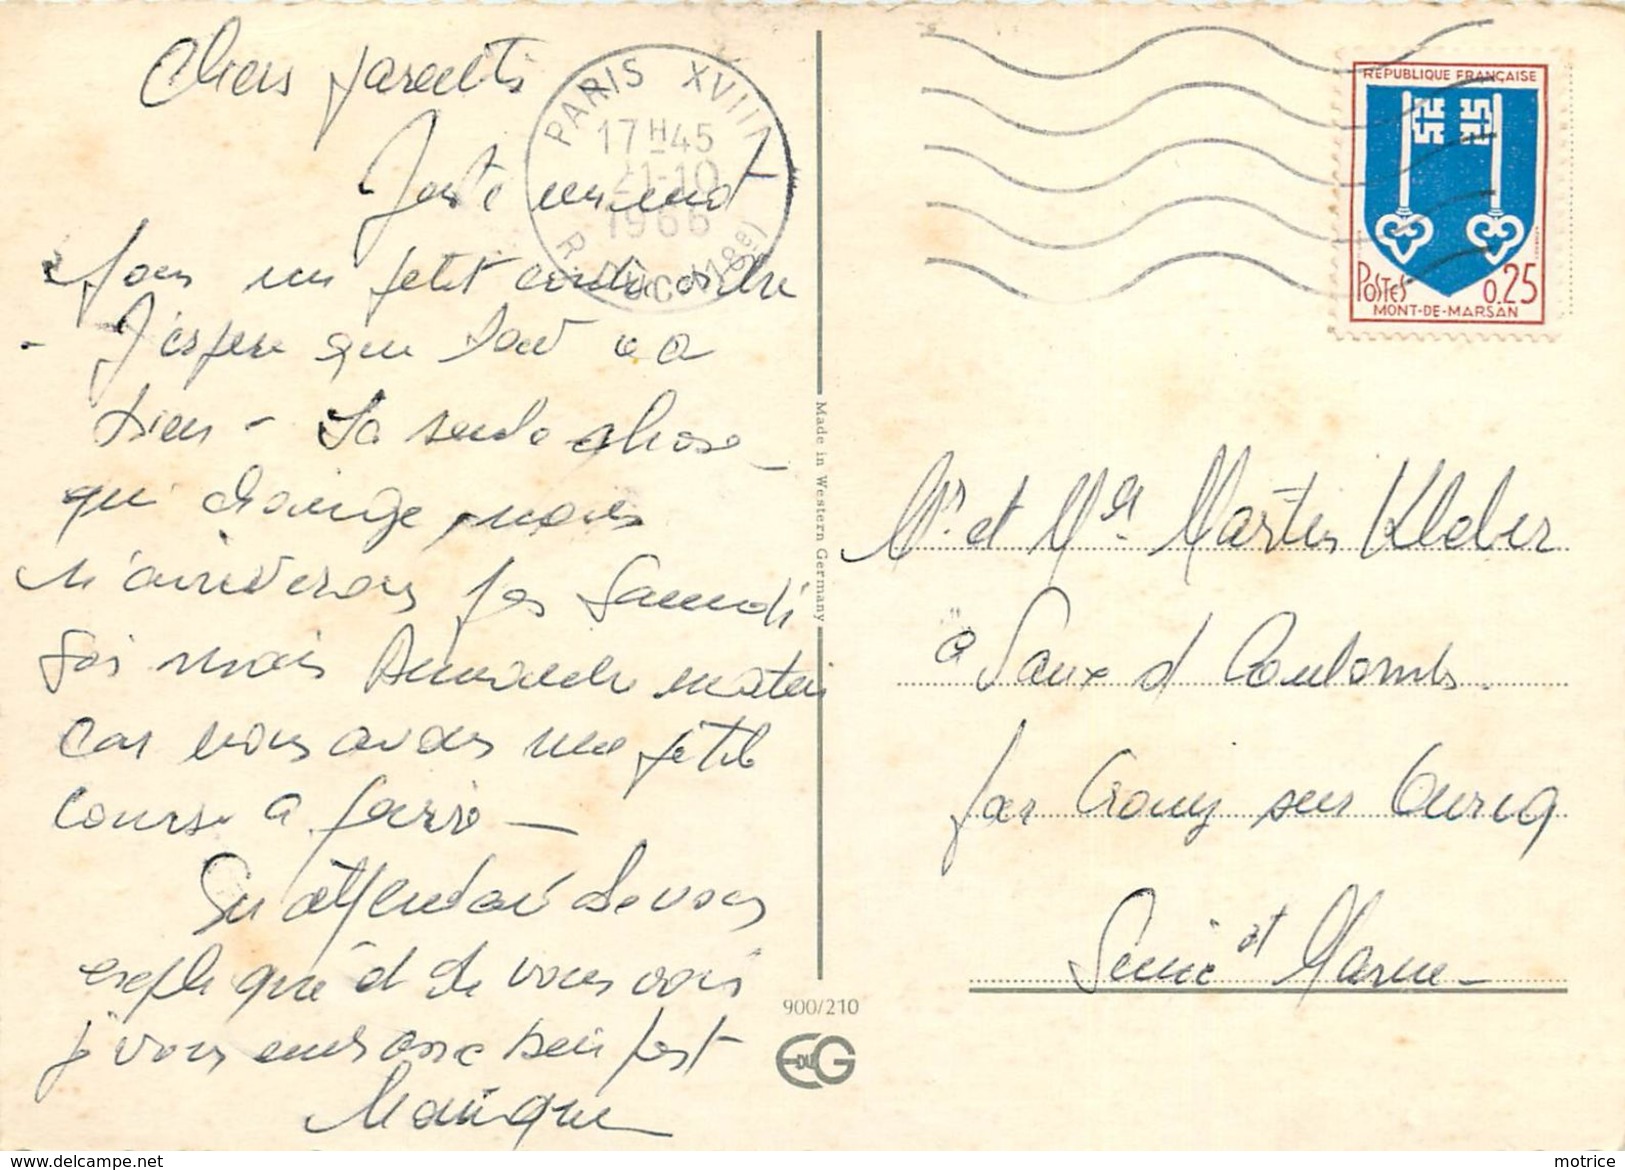 Chers parents
Juste un mot
pour un petit contre ordre
- J'espère que tout va
bien - La seule chose
qui change nous
n'arriverons pas Samedi
soir mais Dimanche matin
car nous avons une petite
course à faire -
En attendant de vous
expliquer et de vous voir
je vous embrasse bien fort
Monique
PARIS XVIII
17H45
21-10
1966
R. DUC (18e)
Made in Western Germany
900/210
EDUG
RÉPUBLIQUE FRANÇAISE
POSTES 0,25
MONT-DE-MARSAN
Mr. et Me. Martin Kleber
à Vaux s/ Coulombs.
par Crouy sur Ourcq
Seine et Marne -
motrice